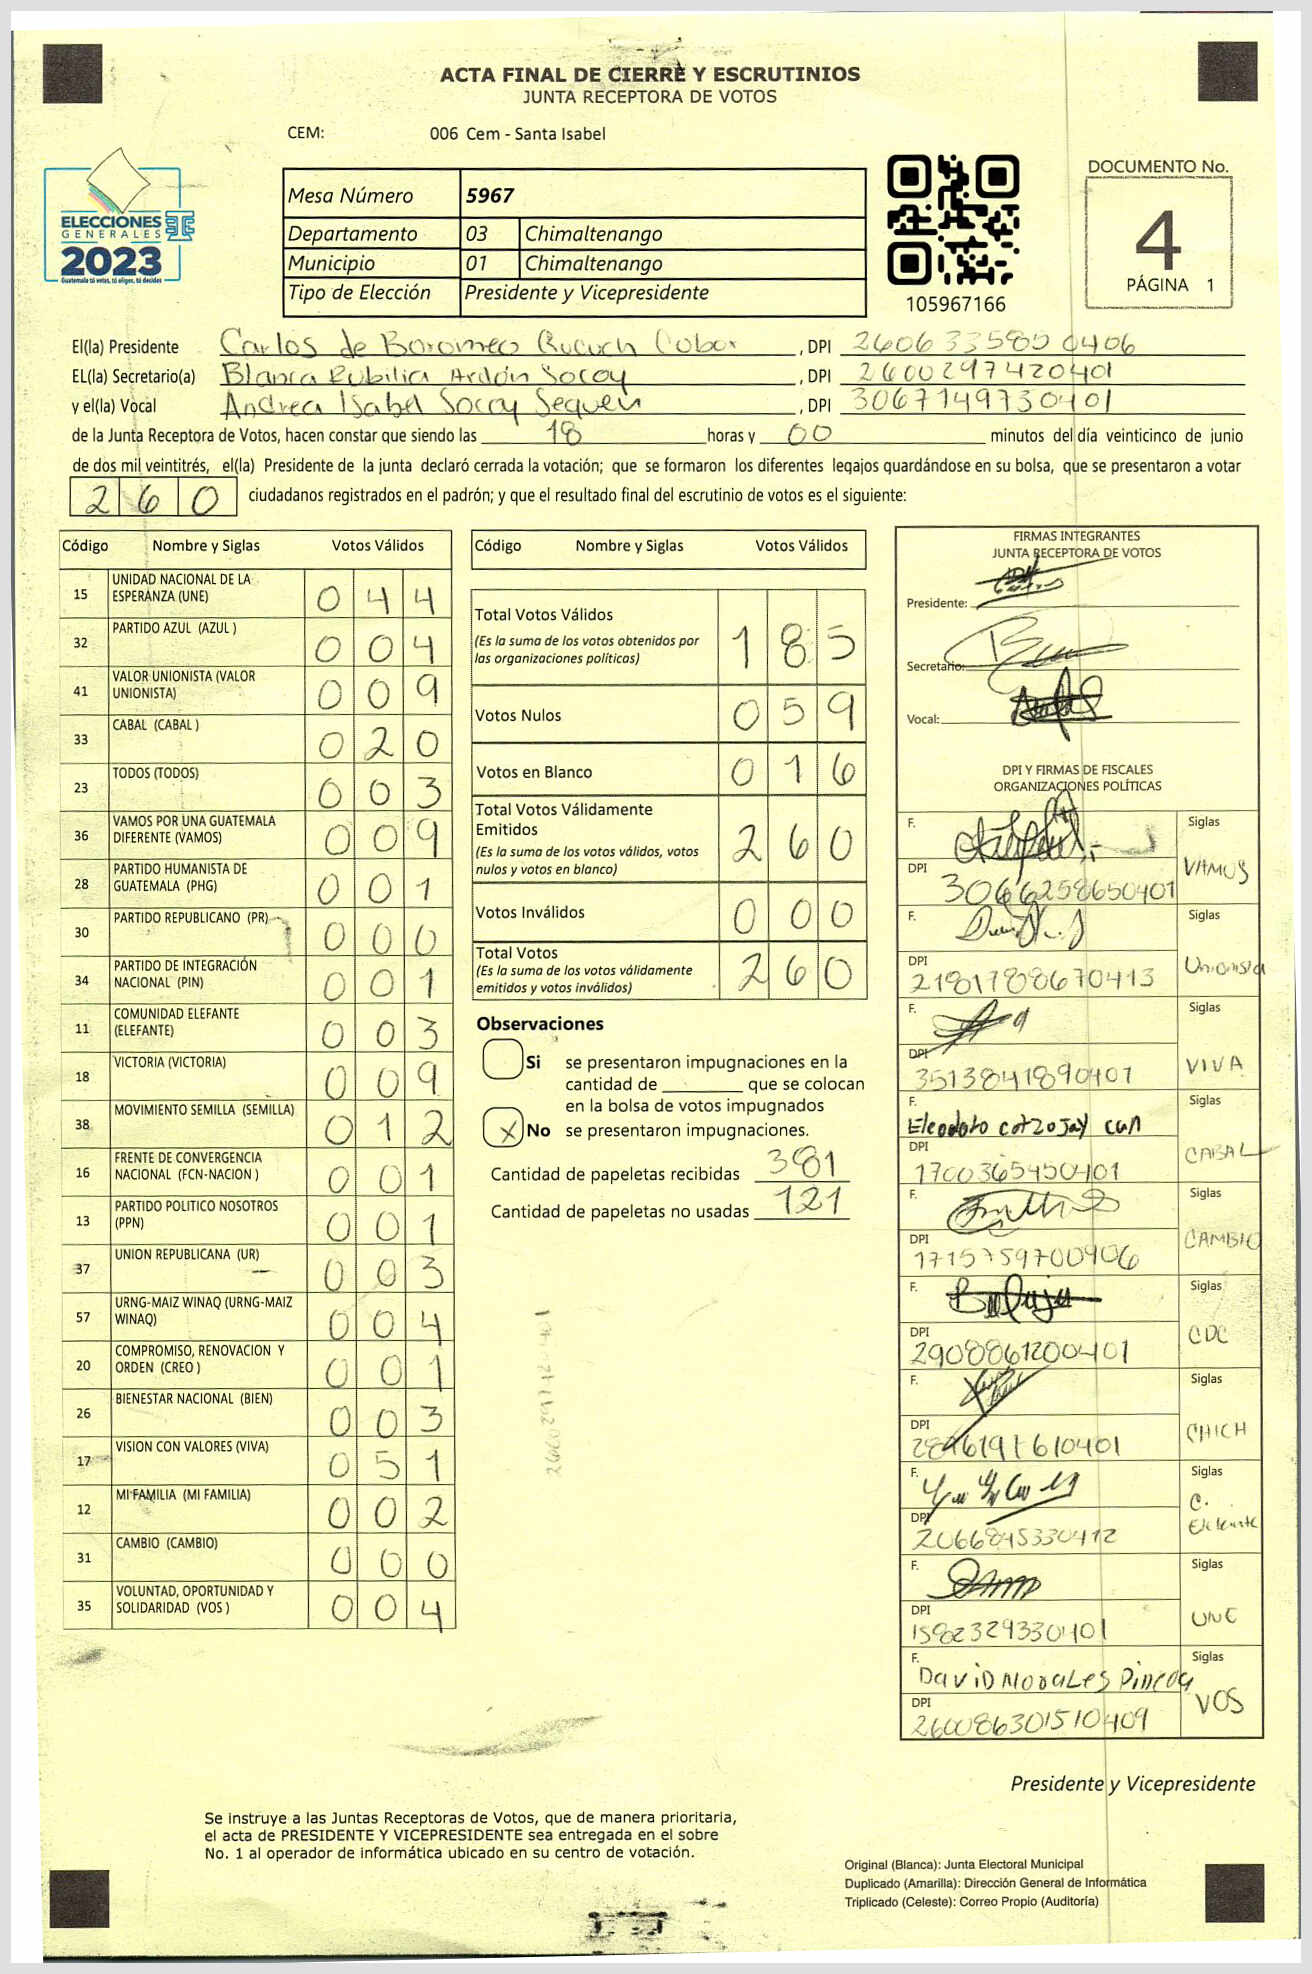 ACTA FINAL DE CIERRE Y ESCRUTINIOS
JUNTA RECEPTORA DE VOTOS
CEM: 006 Cem - Santa Isabel
ELECCIONES
GENERALES
2023
Guatemala tú votas, tú eliges, tú decides
Mesa Número 5967
Departamento 03 Chimaltenango
Municipio 01 Chimaltenango
Tipo de Elección Presidente y Vicepresidente
105967166
DOCUMENTO No.
4
PÁGINA 1
El(la) Presidente Carlos de Boromeo , DPI 2606335850406
EL(la) Secretario(a) Blanca Rubilia Ardón Socoy , DPI 2600297420401
y el(la) Vocal Andrea Isabel Socoy Sequen , DPI 3067149730401
de la Junta Receptora de Votos, hacen constar que siendo las 18 horas y 00 minutos del día veinticinco de junio
de dos mil veintitrés, el(la) Presidente de la junta declaró cerrada la votación; que se formaron los diferentes legajos guardándose en su bolsa, que se presentaron a votar
260 ciudadanos registrados en el padrón; y que el resultado final del escrutinio de votos es el siguiente:
Código Nombre y Siglas Votos Válidos
15 UNIDAD NACIONAL DE LA ESPERANZA (UNE) 044
32 PARTIDO AZUL (AZUL ) 004
41 VALOR UNIONISTA (VALOR UNIONISTA) 009
33 CABAL (CABAL ) 020
23 TODOS (TODOS) 003
36 VAMOS POR UNA GUATEMALA DIFERENTE (VAMOS) 009
28 PARTIDO HUMANISTA DE GUATEMALA (PHG) 001
30 PARTIDO REPUBLICANO (PR) 000
34 PARTIDO DE INTEGRACIÓN NACIONAL (PIN) 001
11 COMUNIDAD ELEFANTE (ELEFANTE) 003
18 VICTORIA (VICTORIA) 009
38 MOVIMIENTO SEMILLA (SEMILLA) 012
16 FRENTE DE CONVERGENCIA NACIONAL (FCN-NACION ) 001
13 PARTIDO POLITICO NOSOTROS (PPN) 001
37 UNION REPUBLICANA (UR) 003
57 URNG-MAIZ WINAQ (URNG-MAIZ WINAQ) 004
20 COMPROMISO, RENOVACION Y ORDEN (CREO ) 001
26 BIENESTAR NACIONAL (BIEN) 003
17 VISION CON VALORES (VIVA) 051
12 MI FAMILIA (MI FAMILIA) 002
31 CAMBIO (CAMBIO) 000
35 VOLUNTAD, OPORTUNIDAD Y SOLIDARIDAD (VOS ) 004
Código Nombre y Siglas Votos Válidos
Total Votos Válidos 185
(Es la suma de los votos obtenidos por
las organizaciones políticas)
Votos Nulos 059
Votos en Blanco 016
Total Votos Válidamente
Emitidos 260
(Es la suma de los votos válidos, votos
nulos y votos en blanco)
Votos Inválidos 000
Total Votos 260
(Es la suma de los votos válidamente
emitidos y votos inválidos)
Observaciones
Si se presentaron impugnaciones en la
cantidad de ________ que se colocan
en la bolsa de votos impugnados
X No se presentaron impugnaciones.
Cantidad de papeletas recibidas 381
Cantidad de papeletas no usadas 121
FIRMAS INTEGRANTES
JUNTA RECEPTORA DE VOTOS
Presidente:
Secretario:
Vocal:
DPI Y FIRMAS DE FISCALES
ORGANIZACIONES POLÍTICAS
F. Siglas
DPI 3066258650401 VAMOS
F. Siglas
DPI 2181788670413 Unionista
F. Siglas
DPI 3513841890401 VIVA
F. Eleodoro cotzojay can Siglas
DPI 1700365450401 CABAL
F. Siglas
DPI 1715759700906 CAMBIO
F. Siglas
DPI 2908861200401 CDC
F. Siglas
DPI CHICH
F. Siglas
DPI 2066845330412 C. Elefante
F. Siglas
DPI 1582329330401 UNE
F. David Morales Pineda Siglas
DPI 260086301510409 VOS
Presidente y Vicepresidente
Se instruye a las Juntas Receptoras de Votos, que de manera prioritaria,
el acta de PRESIDENTE Y VICEPRESIDENTE sea entregada en el sobre
No. 1 al operador de informática ubicado en su centro de votación.
Original (Blanca): Junta Electoral Municipal
Duplicado (Amarilla): Dirección General de Informática
Triplicado (Celeste): Correo Propio (Auditoría)